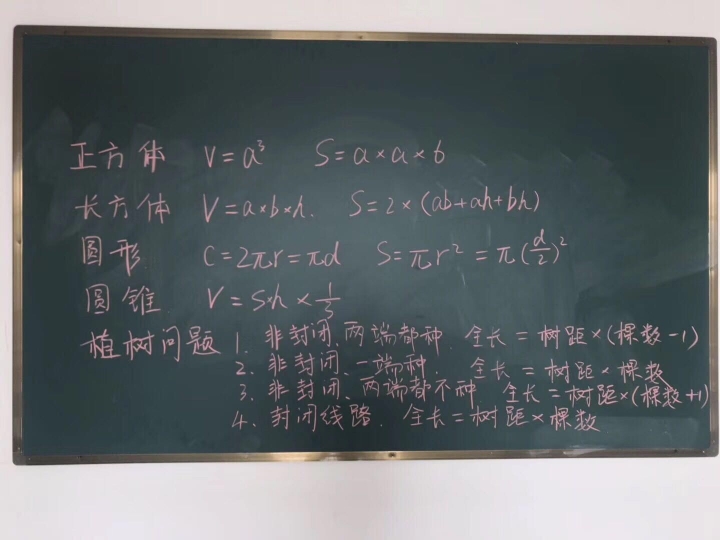 正方体 V=a³ S=a×a×6
长方体 V=a×b×h. S=2×(ab+ah+bh)
圆形 C=2πr=πd S=πr²=π(d/2)²
圆锥 V=s×h×1/3
植树问题 1. 非封闭、两端都种. 全长=树距×(棵数-1)
2. 非封闭、一端种. 全长=树距×棵数
3. 非封闭、两端都不种 全长=树距×(棵数+1)
4. 封闭线路. 全长=树距×棵数